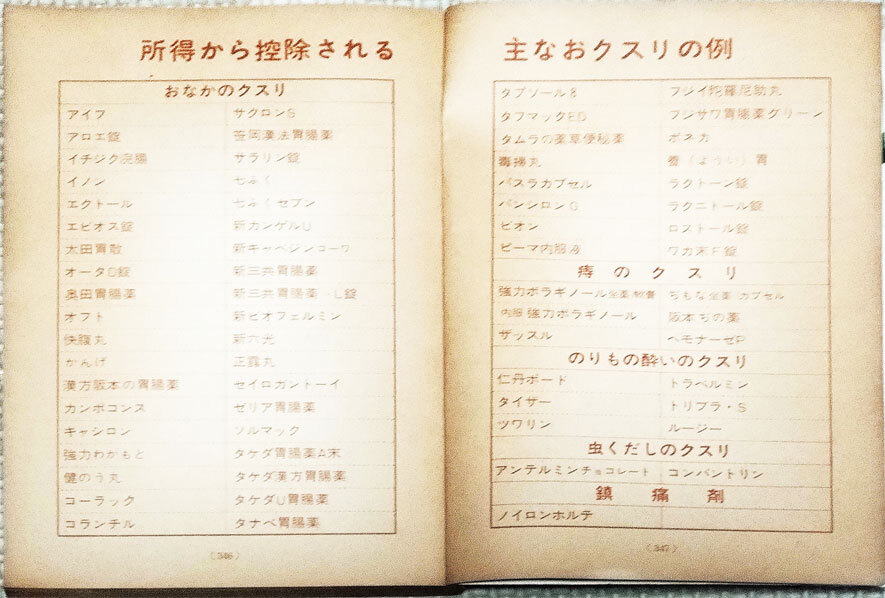 所得から控除される
おなかのクスリ
アイフ サクロンS
アロエ錠 笹岡漢法胃腸薬
イチジク浣腸 サラリン錠
イノン 七ふく
エクトール 七ふくセブン
エビオス錠 新カンゲルU
太田胃散 新キャベジンコーワ
オータD錠 新三共胃腸薬
奥田胃腸薬 新三共胃腸薬 L錠
オフト 新ビオフェルミン
快腹丸 新六光
かんげ 正露丸
漢方阪本の胃腸薬 セイロガントーイ
カンポコンス ゼリア胃腸薬
キャシロン ソルマック
強力わかもと タケダ胃腸薬A末
健のう丸 タケダ漢方胃腸薬
コーラック タケダU胃腸薬
コランチル タナベ胃腸薬
(346)
主なおクスリの例
タプソール8 フジイ陀羅尼助丸
タフマックED フジサワ胃腸薬グリーン
タムラの薬草便秘薬 ボネカ
毒掃丸 養(ようい)胃
パスラカプセル ラクトーン錠
パンシロンG ラクニトール錠
ビオン ロストール錠
ピーマ内服液 ワカ末F錠
痔のクスリ
強力ボラギノール坐薬/軟膏 ぢもな坐薬/カプセル
内服強力ボラギノール 阪本ぢの薬
ザッスル ヘモナーゼP
のりもの酔いのクスリ
仁丹ボード トラベルミン
タイザー トリブラ・S
ツワリン ルージー
虫くだしのクスリ
アンテルミンチョコレート コンバントリン
鎮痛剤
ノイロンホルテ
(347)